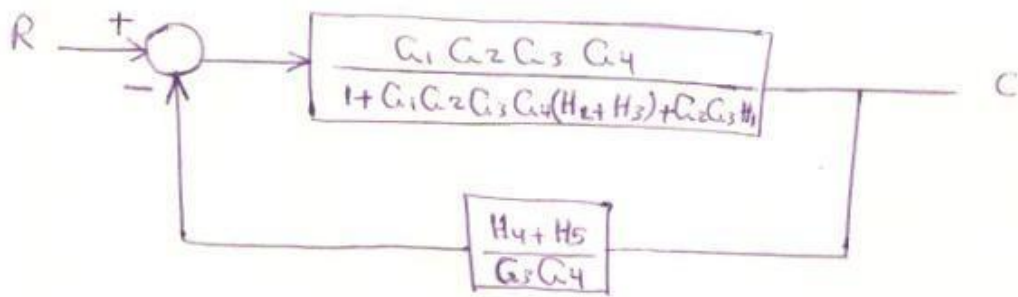 R + G1 G2 G3 G4
1+G1G2G3G4(H2+H3)+G2G3H1 C
−
H4+H5
G3G4